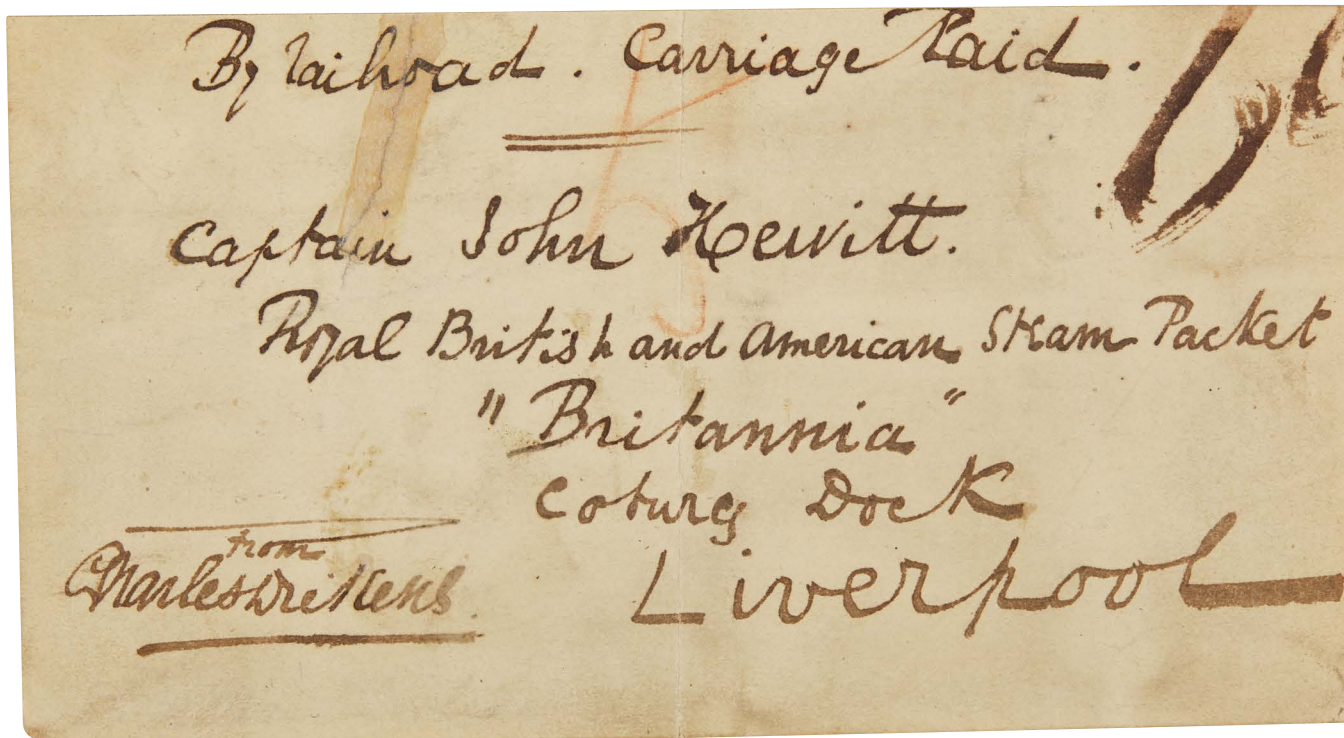 By railroad. Carriage Paid.
Captain John Hewitt.
Royal British and American Steam Packet
"Britannia"
Coburg Dock
Liverpool
from
Charles Dickens.